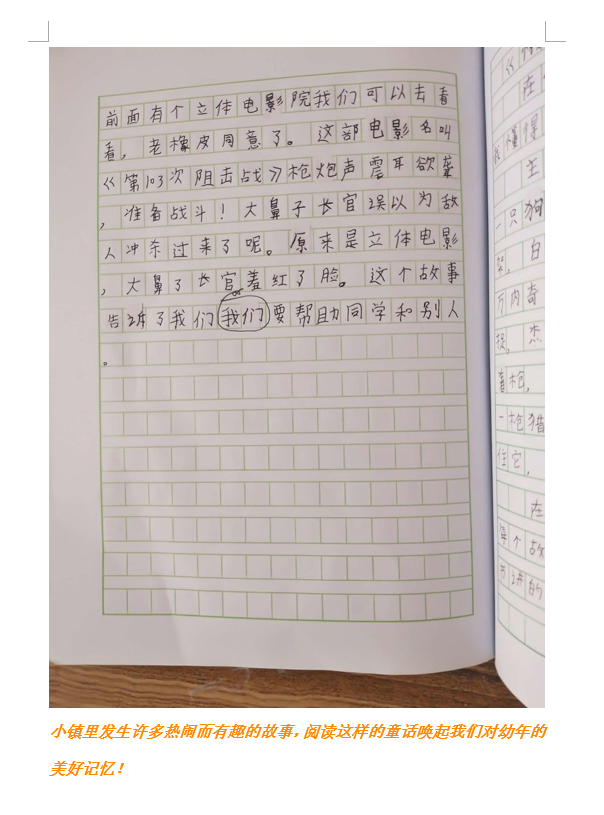 前面有个立体电影院我们可以去看
看，老橡皮同意了。这部电影名叫
《第103次阻击战》枪炮声震耳欲聋
，准备战斗！大鼻子长官误以为敌
人冲杀过来了呢。原来是立体电影
，大鼻子长官羞红了脸。这个故事
告诉了我们我们要帮助同学和别人
。
在
主
一只狗
白
万内奇
捉。杰
着枪，
一枪猎
住它，
在
每个故
的
小镇里发生许多热闹而有趣的故事，阅读这样的童话唤起我们对幼年的
美好记忆！